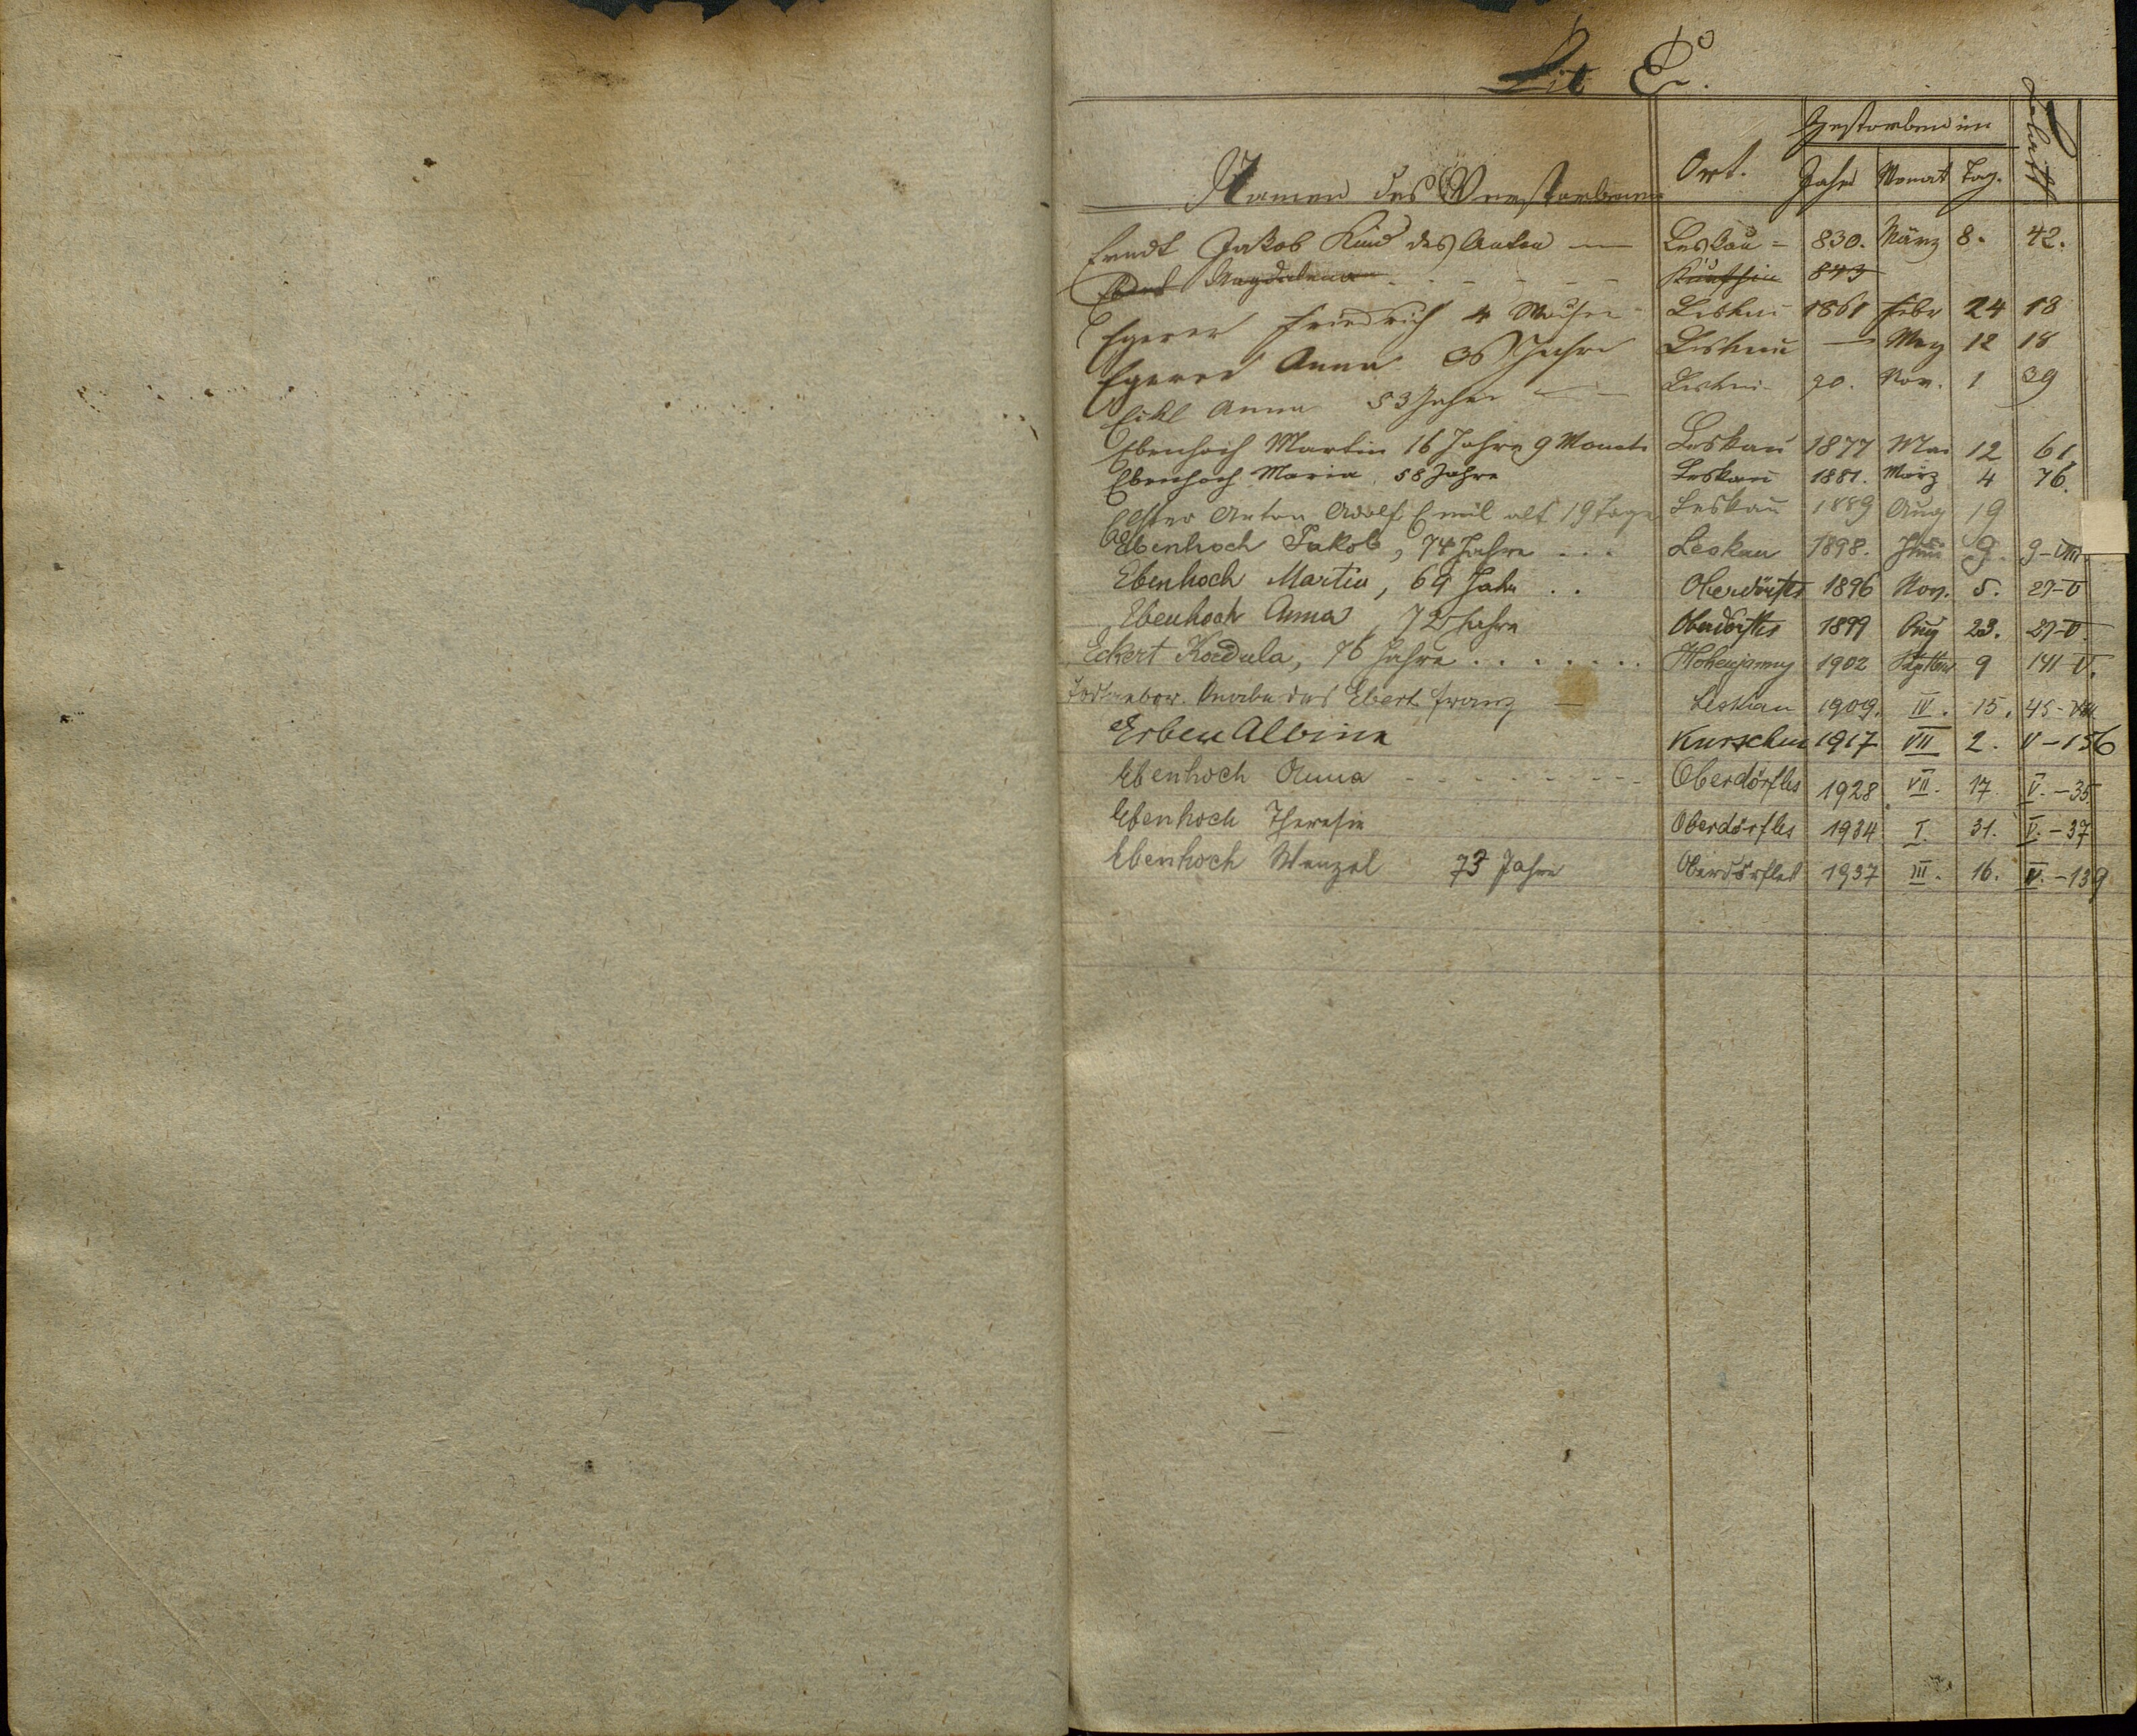 Lit E.
Namen des Verstorbenen Ort. Gestorben im Jahr Monat Tag. Blatt
Erndt Jakob Kind des Anton — Leskau 830. März 8. 42.
Magdalena 843
Egerer Friedrich 4 Wochen Leskau 1861 Febr 24 18
Egerer Anna Jahre Leskau — May 12 18
Eckl Anna 53 Jahre — Leskau 70. Nov. 1 39
Ebenhoch Martin 16 Jahre 9 Monate Leskau 1877 Mai 12 61
Ebenhoch Maria 58 Jahre Leskau 1881. März 4 76.
Anton Adolf Emil alt 19 Tage Leskau 1889 Aug 19
Ebenhoch Jakob, 74 Jahre . . . Leskau 1898. Juni 9. 9-VIII
Ebenhoch Martin, 69 Jahre . . Oberdörfles 1896 Nov. 5. 27-V
Ebenhoch Anna, 72 Jahre Oberdörfles 1899 Aug 23. 27-V.
Eckert Kordula, 76 Jahre . . . . . . . Hohenjamny 1902 September 9 141-V.
Todtgebor. Knabe des Ebert Franz — Leskau 1909. IV. 15. 45-VIII
Erben Albine Kurschin 1917 VII 2. V-156
Ebenhoch Anna - - - - - - - - - Oberdörfles 1928 VII. 17. V.-35
Ebenhoch Theresie Oberdörfles 1934 I. 31. V.-37
Ebenhoch Wenzel 73 Jahre Oberdörfles 1937 III. 16. V.-139